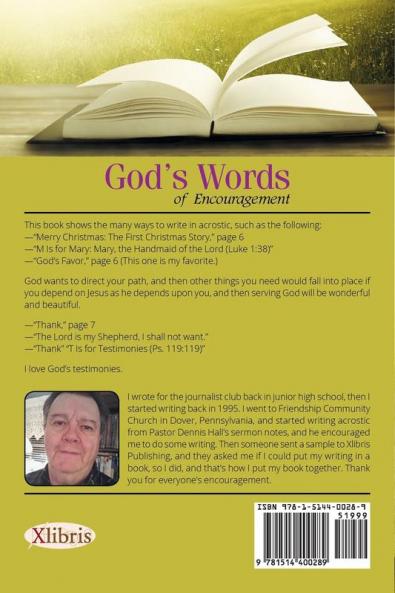 God's Words
of Encouragement
This book shows the many ways to write in acrostic, such as the following:
—"Merry Christmas: The First Christmas Story," page 6
—"M Is for Mary: Mary, the Handmaid of the Lord (Luke 1:38)"
—"God's Favor," page 6 (This one is my favorite.)
God wants to direct your path, and then other things you need would fall into place if
you depend on Jesus as he depends upon you, and then serving God will be wonderful
and beautiful.
—"Thank," page 7
—"The Lord is my Shepherd, I shall not want."
—"Thank" "T Is for Testimonies (Ps. 119:119)"
I love God's testimonies.
I wrote for the journalist club back in junior high school, then I
started writing back in 1995. I went to Friendship Community
Church in Dover, Pennsylvania, and started writing acrostic
from Pastor Dennis Hall's sermon notes, and he encouraged
me to do some writing. Then someone sent a sample to Xlibris
Publishing, and they asked me if I could put my writing in a
book, so I did, and that's how I put my book together. Thank
you for everyone's encouragement.
Xlibris
ISBN 978-1-5144-0028-9
51999
9 781514 400289